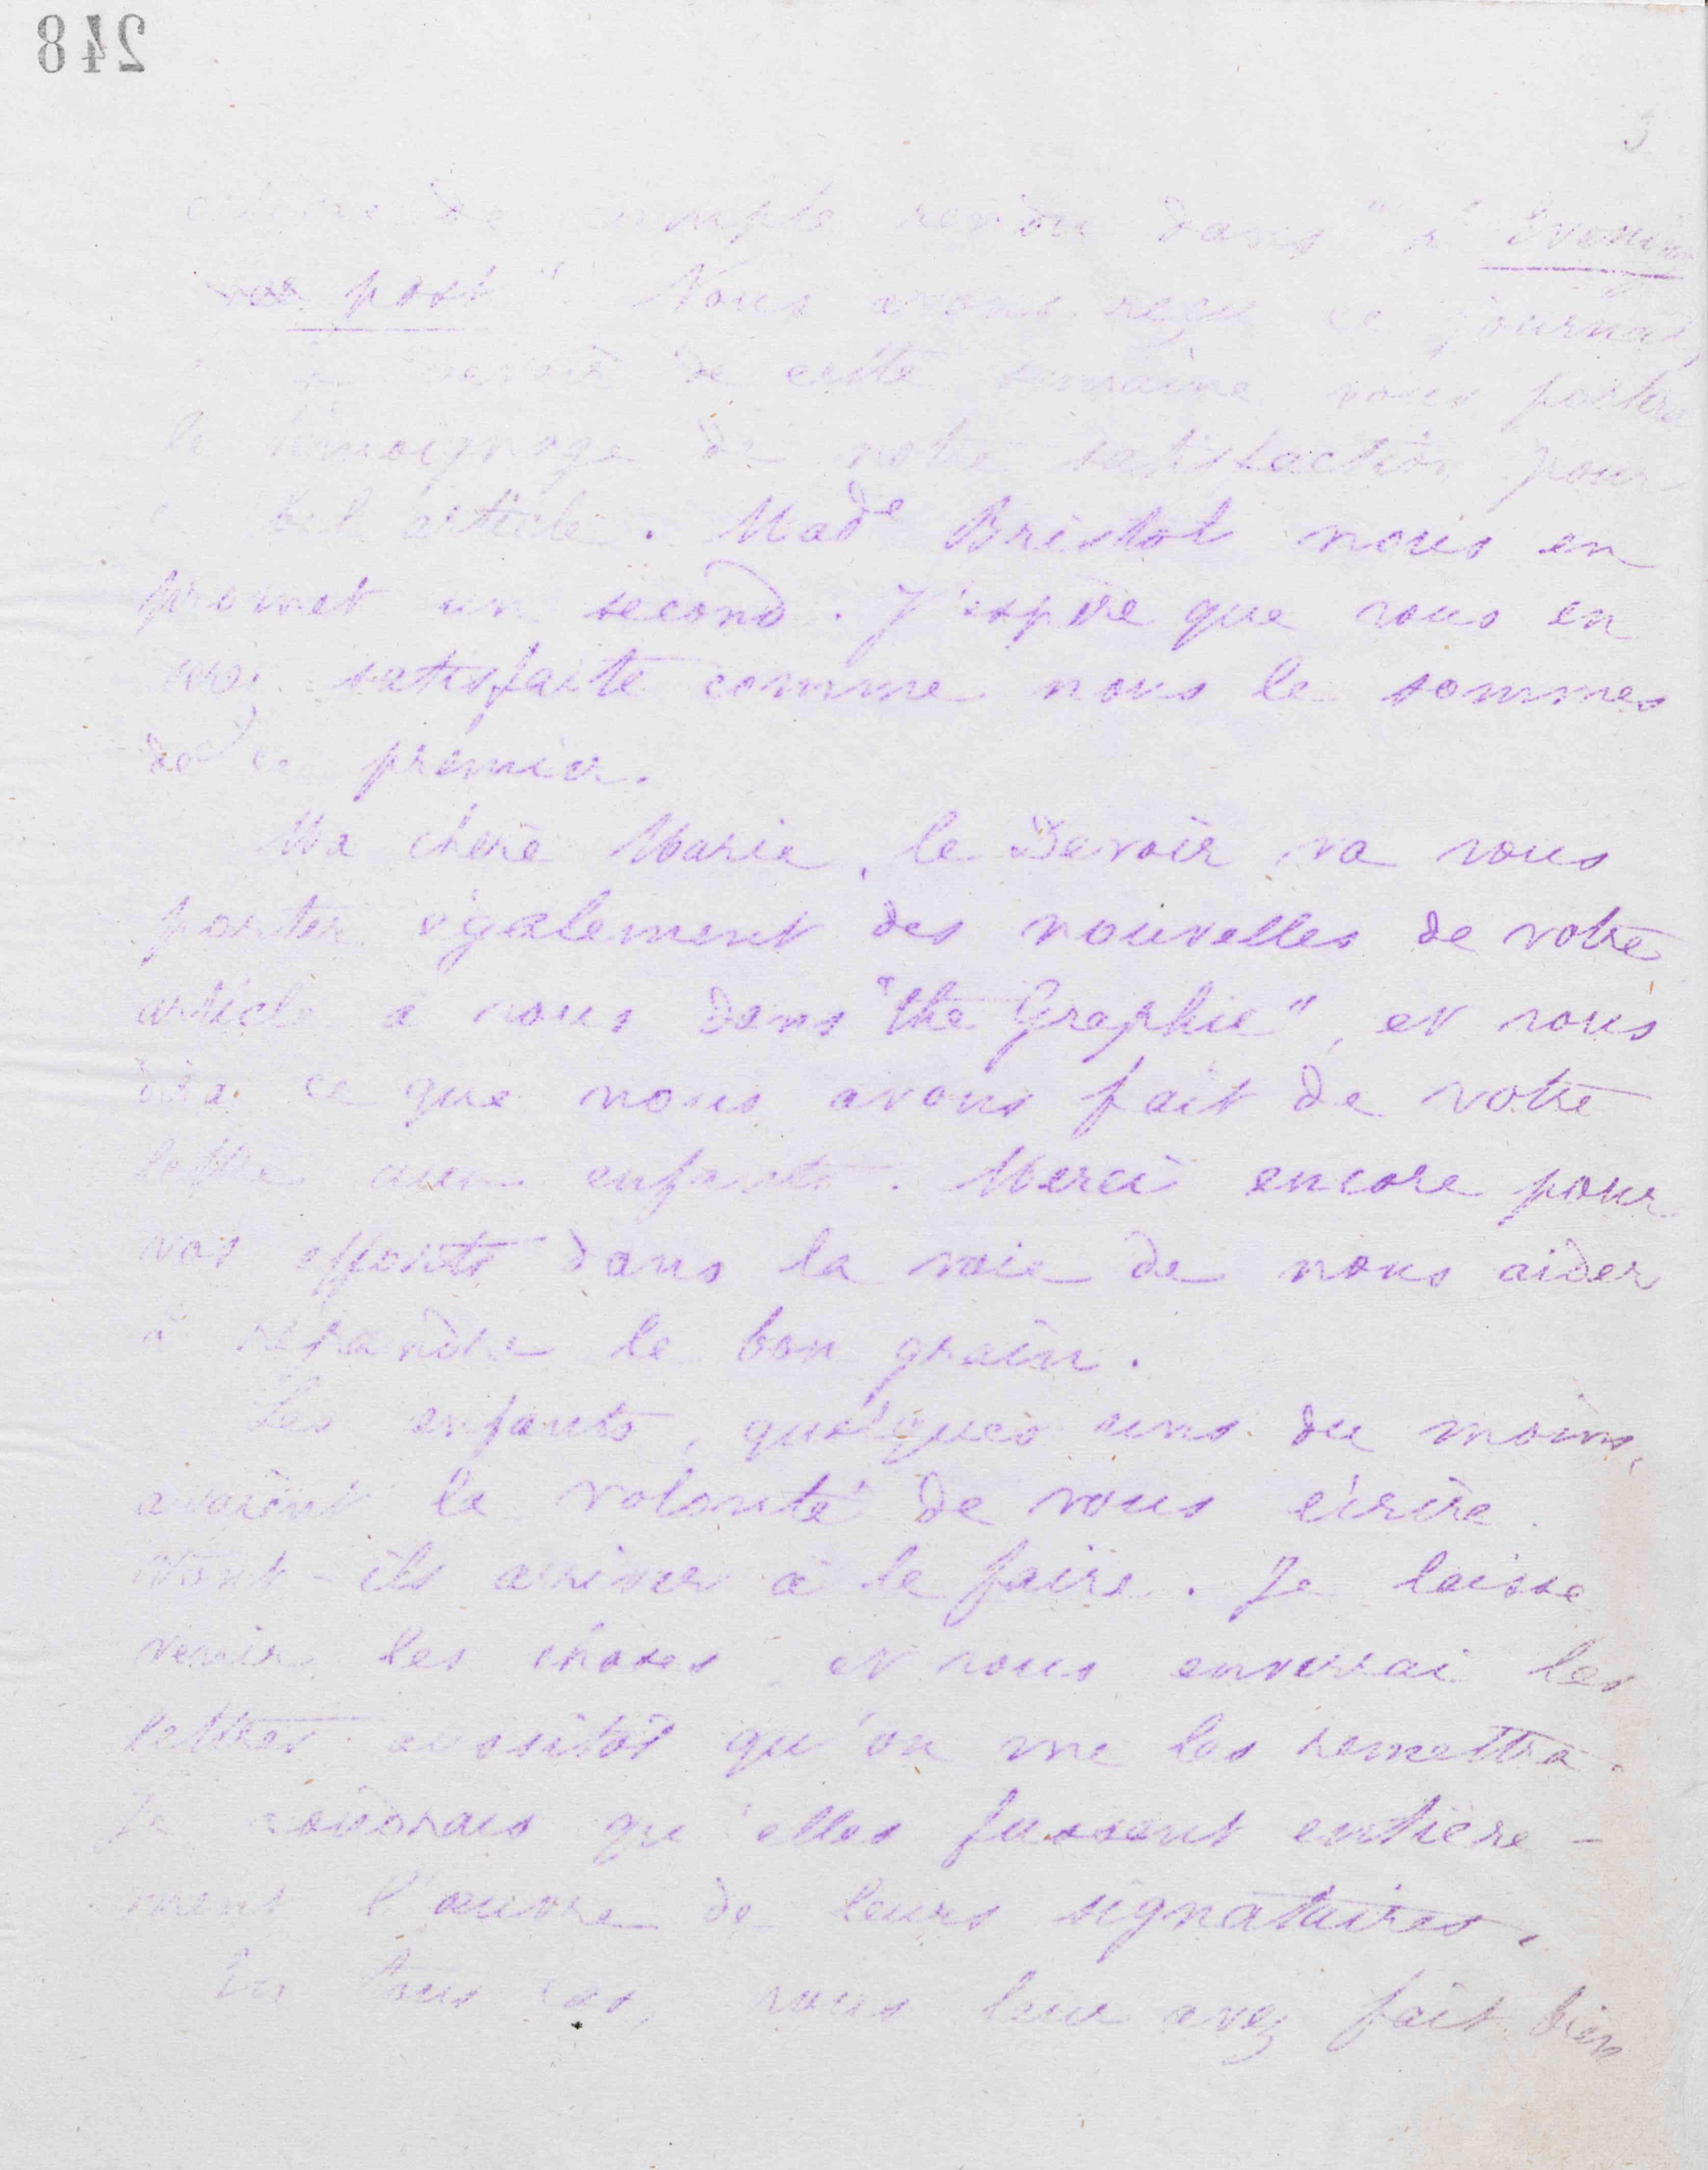 248
3
de compte rendu dans "l' Evening
post" Nous avons reçu ce journal,
devoir de cette semaine vous portera
le témoignage de notre satisfaction pour
bel article. Made Bristol nous en
promet un second. J'espère que vous en
satisfaite comme nous le sommes
de ce premier.
Ma chère Marie, le Devoir va vous
porter également des nouvelles de votre
article à nous dans "the Graphic", et vous
dira ce que nous avons fait de votre
lettre aux enfants. Merci encore pour
vos efforts dans la voie de nous aider
à répandre le bon grain.
Les enfants, quelques uns du moins,
avaient la volonté de vous écrire.
Vont-ils arriver à le faire. Je laisse
venir les choses et vous enverrai les
lettres aussitôt qu'on me les remettra.
Je voudrais qu'elles fussent entière-
ment l'œuvre de leurs signataires.
En tous cas, vous leur avez fait bien